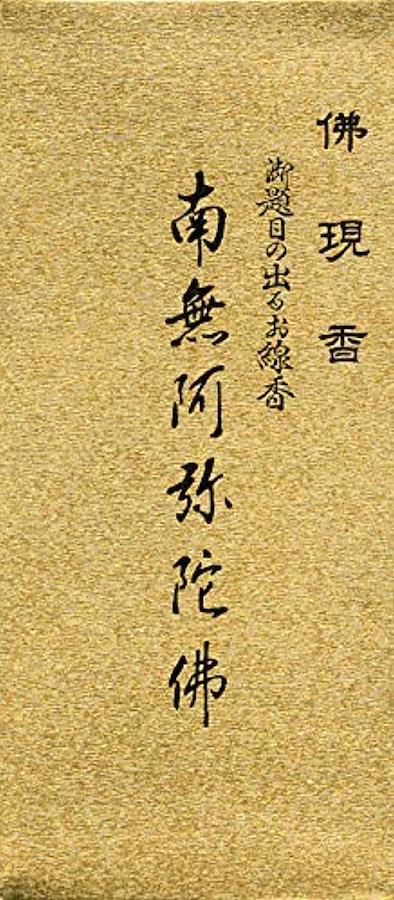 佛現香
御題目の出るお線香
南無阿弥陀佛